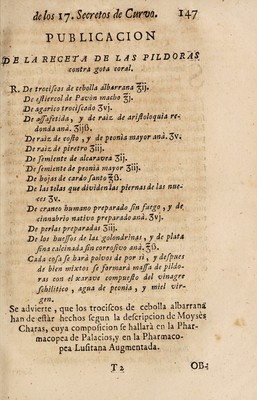 de los 17. Secretos de Curvo. 147
PUBLICACION
DE LA RECETA DE LAS PILDORAS
contra gota coral.
R. De trociscos de cebolla albarrana ℥ij.
De estiercol de Pavòn macho ℥j.
De agarico trociscado ʒv.
De assafetida, y de raiz de aristoloquia re-
donda anà. ʒijß.
De raiz de costo, y de peonia mayor anà. ʒv.
De raiz de piretro ʒiij.
De semiente de alcaravea ʒij.
De semiente de peonia mayor ʒiij.
De hojas de cardo santo ℥ß.
De las telas que dividen las piernas de las nue-
ces ʒv.
De craneo humano preparado sin fuego, y de
cinnabrio nativo preparado anà. ʒvj.
De perlas preparadas ʒiij.
De los huessos de las golondrinas, y de plata
fina calcinada sin corrosivo anà. ℥ß.
Cada cosa se harà polvos de por si, y despues
de bien mixtos se formarà massa de pildo-
ras con el xarave compuesto del vinagre
schilitico, agua de peonia, y miel vir-
gen.
Se advierte, que los trociscos de cebolla albarrana
han de estàr hechos segun la descripcion de Moysès
Charas, cuya composicion se hallarà en la Phar-
macopea de Palacios, y en la Pharmaco-
pea Lusitana Augmentada.
T2 OB-